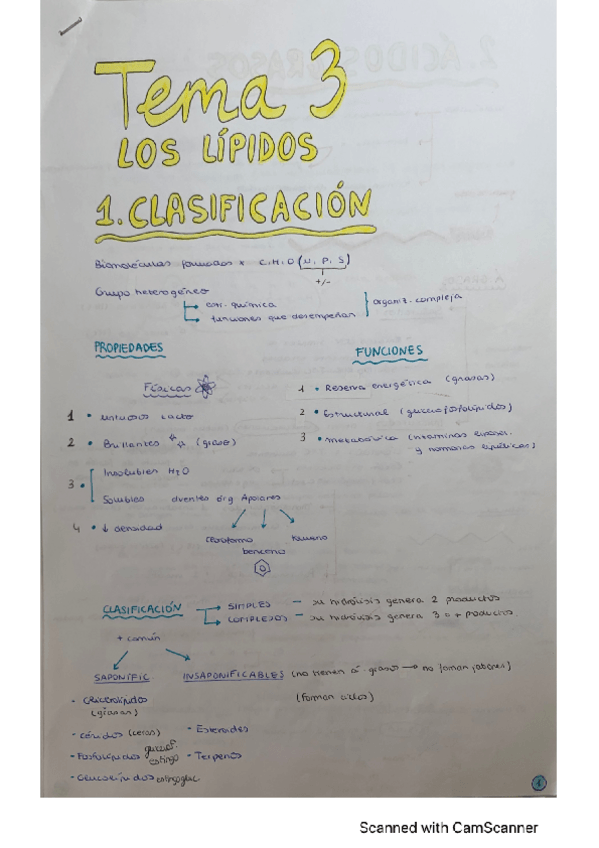 Tema 3
LOS LÍPIDOS
1. CLASIFICACIÓN
Biomoléculas formadas x C, H, O (N, P, S)
+/-
Grupo heterogéneo
estr. química
funciones que desempeñan
organiz. compleja
PROPIEDADES
Físicas
1 • untuosos tacto
2 • Brillantes (graso)
3 • Insolubles H2O
Solubles dventes órg Apolares
cloroformo
benceno
4 • ↓ densidad
FUNCIONES
1 • Reserva energética (grasas)
2 • Estructural
3 • Metabólica
CLASIFICACIÓN
SIMPLES — su hidrólisis genera 2 productos
COMPLEJOS — su hidrólisis genera 3 o + productos
+ común
SAPONIFIC.
- Glicerolípidos
(grasas)
- céridos (ceras)
- Fosfolípidos
INSAPONIFICABLES (no tienen á graso → no forman jabones)
- Esteroides
- Terpenos
1
Scanned with CamScanner